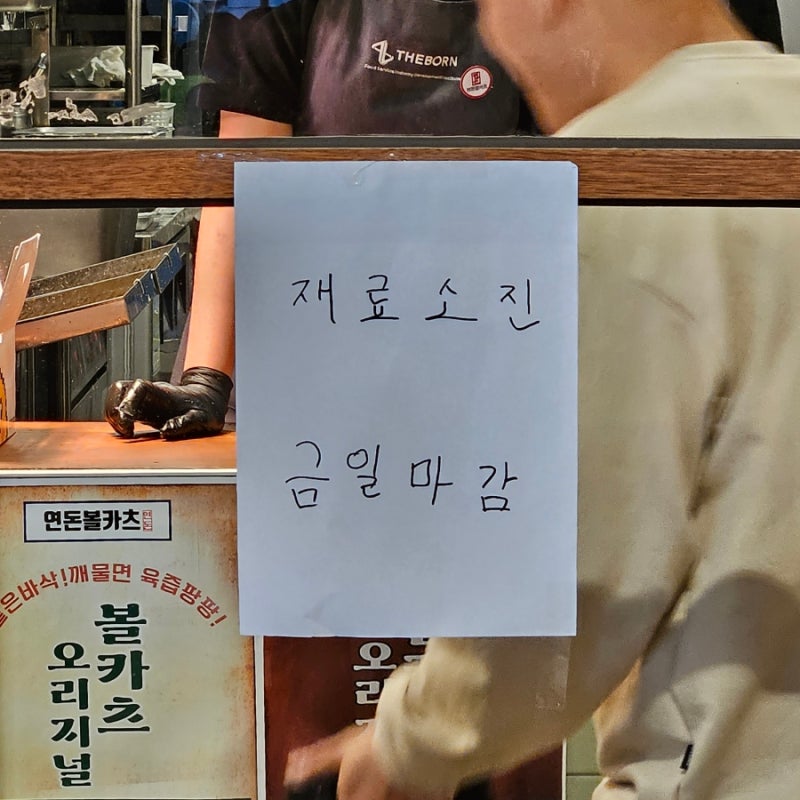 THEBORN
재료소진
금일마감
연돈볼카츠
바삭!깨물면 육즙팡팡!
볼카츠
오리지널
오리